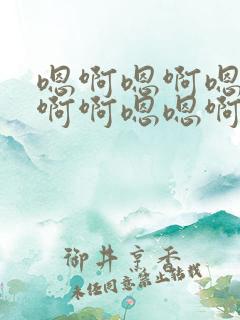 嗯啊嗯啊嗯
啊啊嗯嗯啊
御井烹香
未经同意禁止转载